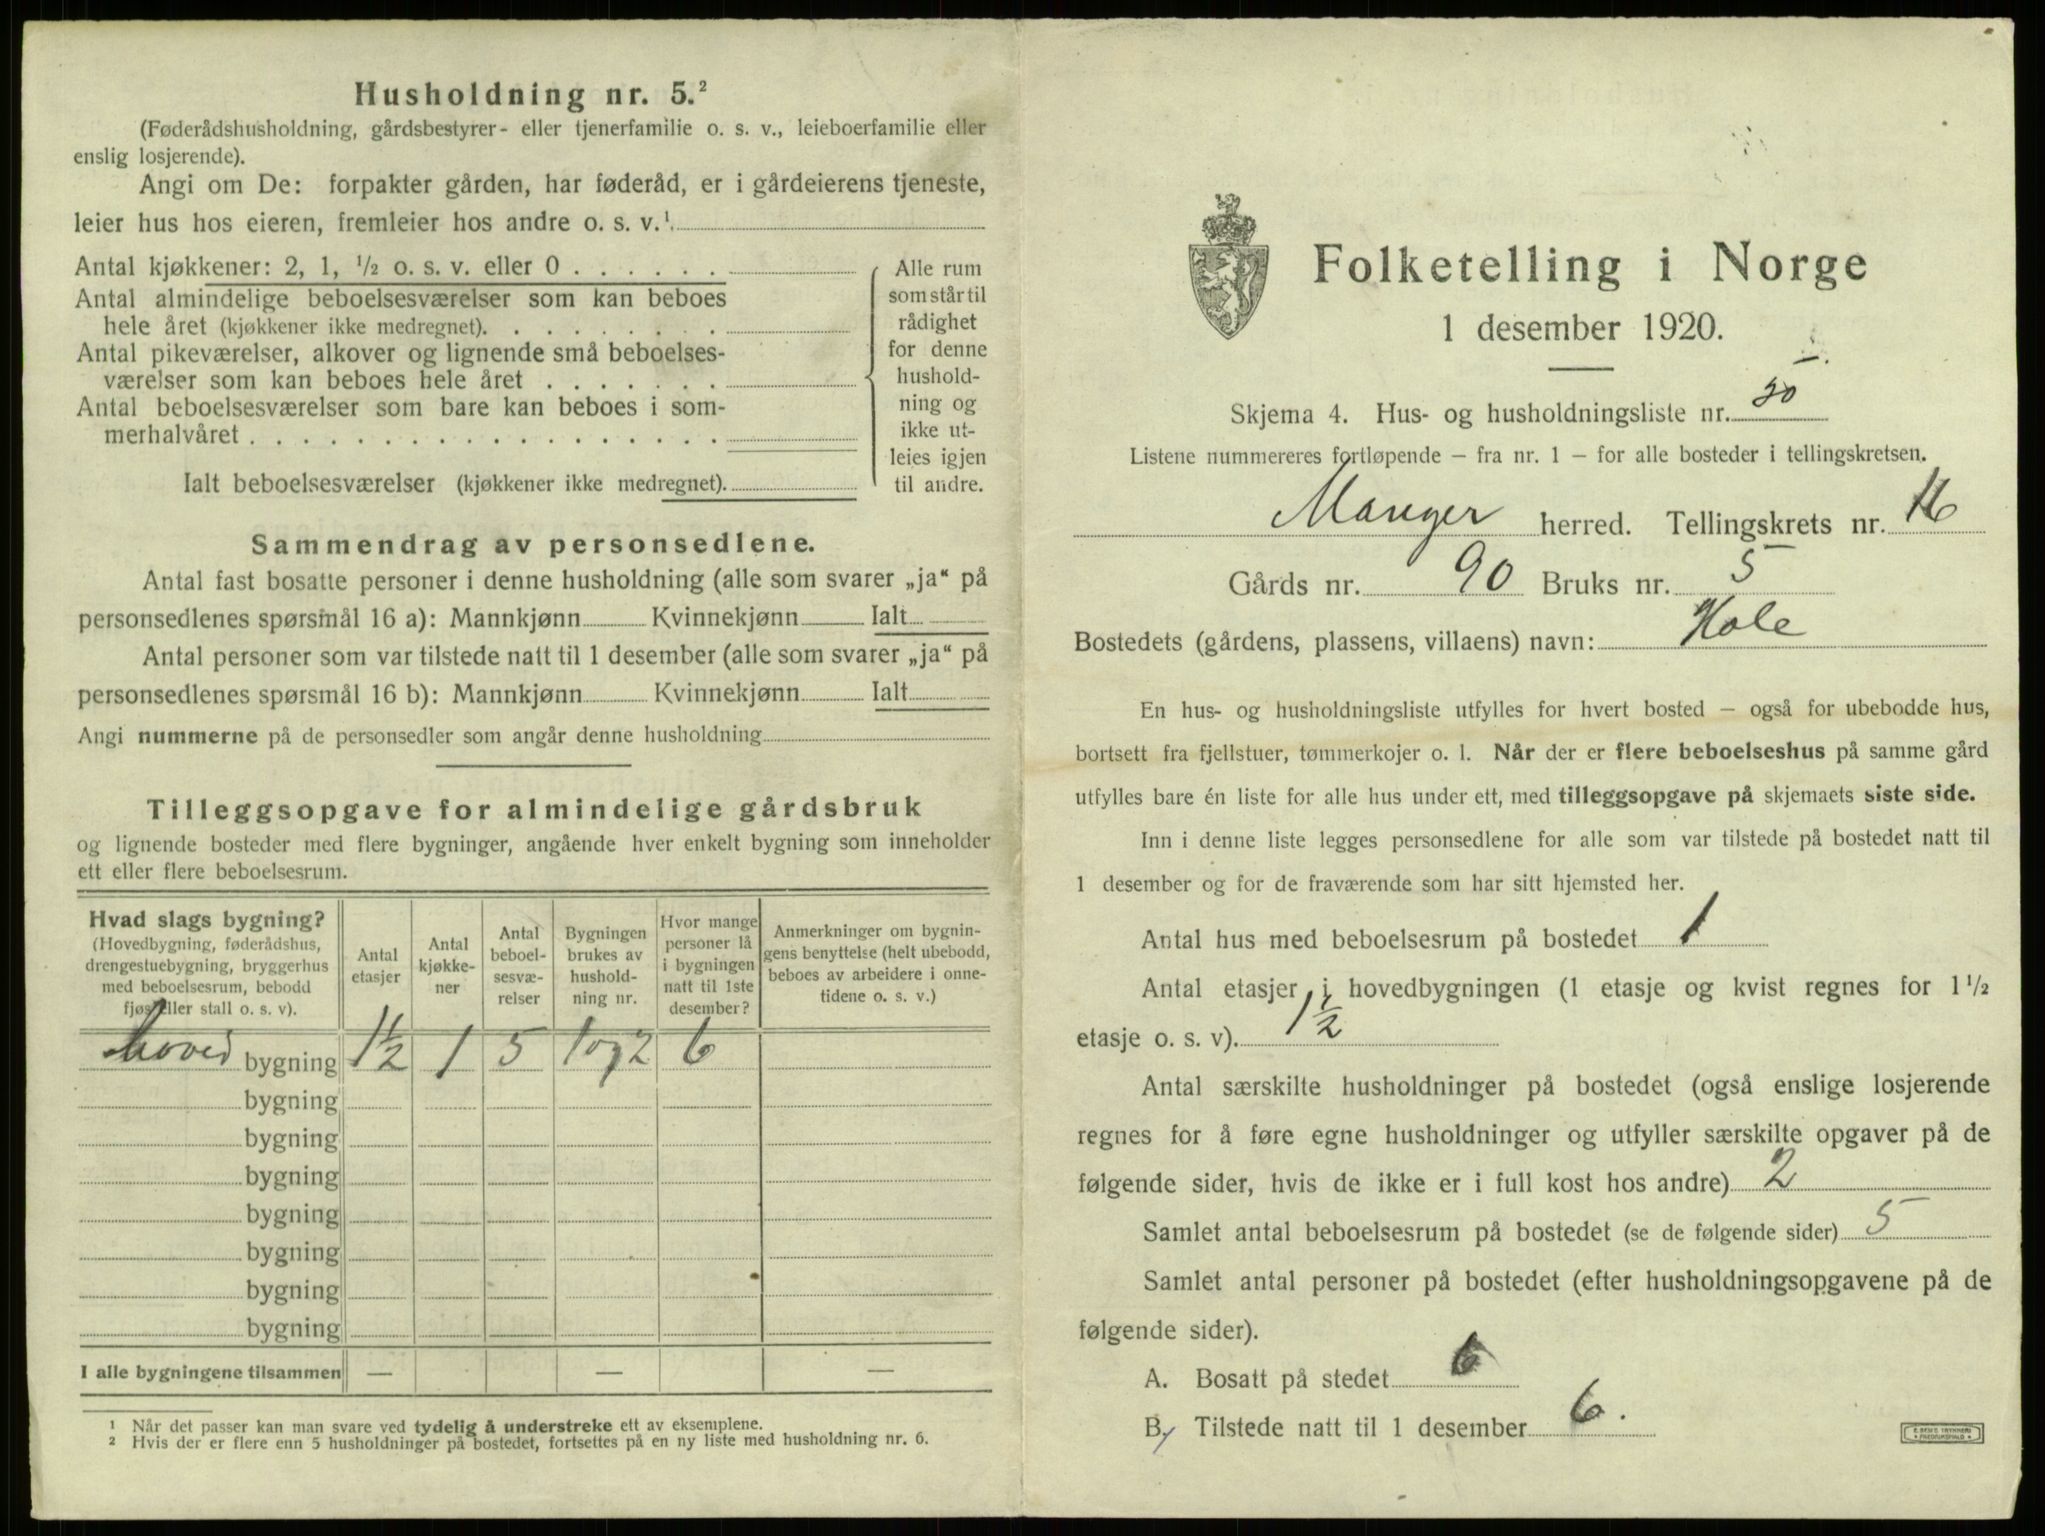 Husholdning nr. 5.²
(Føderådshusholdning, gårdsbestyrer- eller tjenerfamilie o. s. v., leieboerfamilie eller
enslig losjerende).
Angi om De: forpakter gården, har føderåd, er i gårdeierens tjeneste,
leier hus hos eieren, fremleier hos andre o. s. v.¹
Antal kjøkkener: 2, 1, ½ o. s. v. eller 0
Antal almindelige beboelsesværelser som kan beboes
hele året (kjøkkener ikke medregnet).
Antal pikeværelser, alkover og lignende små beboelses-
værelser som kan beboes hele året
Antal beboelsesværelser som bare kan beboes i som-
merhalvåret
Ialt beboelsesværelser (kjøkkener ikke medregnet).
Alle rum
som står til
rådighet
for denne
hushold-
ning og
ikke ut-
leies igjen
til andre.
Sammendrag av personsedlene.
Antal fast bosatte personer i denne husholdning (alle som svarer „ja“ på
personsedlenes spørsmål 16 a): Mannkjønn Kvinnekjønn Ialt
Antal personer som var tilstede natt til 1 desember (alle som svarer „ja“ på
personsedlenes spørsmål 16 b): Mannkjønn Kvinnekjønn Ialt
Angi nummerne på de personsedler som angår denne husholdning
Tilleggsopgave for almindelige gårdsbruk
og lignende bosteder med flere bygninger, angående hver enkelt bygning som inneholder
ett eller flere beboelsesrum.
Hvad slags bygning?
(Hovedbygning, føderådshus,
drengestuebygning, bryggerhus
med beboelsesrum, bebodd
fjøs eller stall o. s. v).
Antal
etasjer
Antal
kjøkke-
ner
Antal
beboel-
sesvæ-
relser
Bygningen
brukes av
hushold-
ning nr.
Hvor mange
personer lå
i bygningen
natt til 1ste
desember?
Anmerkninger om bygnin-
gens benyttelse (helt ubebodd,
beboes av arbeidere i onne-
tidene o. s. v.)
hoved bygning 1½ 1 5 1 og 2 6
bygning
bygning
bygning
bygning
bygning
bygning
bygning
I alle bygningene tilsammen — — —
¹ Når det passer kan man svare ved tydelig å understreke ett av eksemplene.
² Hvis der er flere enn 5 husholdninger på bostedet, fortsettes på en ny liste med husholdning nr. 6.
Folketelling i Norge
1 desember 1920.
Skjema 4. Hus- og husholdningsliste nr.
Listene nummereres fortløpende – fra nr. 1 – for alle bosteder i tellingskretsen.
Manger herred. Tellingskrets nr.
Gårds nr. 90 Bruks nr. 5
Bostedets (gårdens, plassens, villaens) navn: Hole
En hus- og husholdningsliste utfylles for hvert bosted – også for ubebodde hus,
bortsett fra fjellstuer, tømmerkojer o. l. Når der er flere beboelseshus på samme gård
utfylles bare én liste for alle hus under ett, med tilleggsopgave på skjemaets siste side.
Inn i denne liste legges personsedlene for alle som var tilstede på bostedet natt til
1 desember og for de fraværende som har sitt hjemsted her.
Antal hus med beboelsesrum på bostedet 1
Antal etasjer i hovedbygningen (1 etasje og kvist regnes for 1½
etasje o. s. v). 1½
Antal særskilte husholdninger på bostedet (også enslige losjerende
regnes for å føre egne husholdninger og utfyller særskilte opgaver på de
følgende sider, hvis de ikke er i full kost hos andre) 2
Samlet antal beboelsesrum på bostedet (se de følgende sider) 5
Samlet antal personer på bostedet (efter husholdningsopgavene på de
følgende sider).
A. Bosatt på stedet 6
B. Tilstede natt til 1 desember 6.